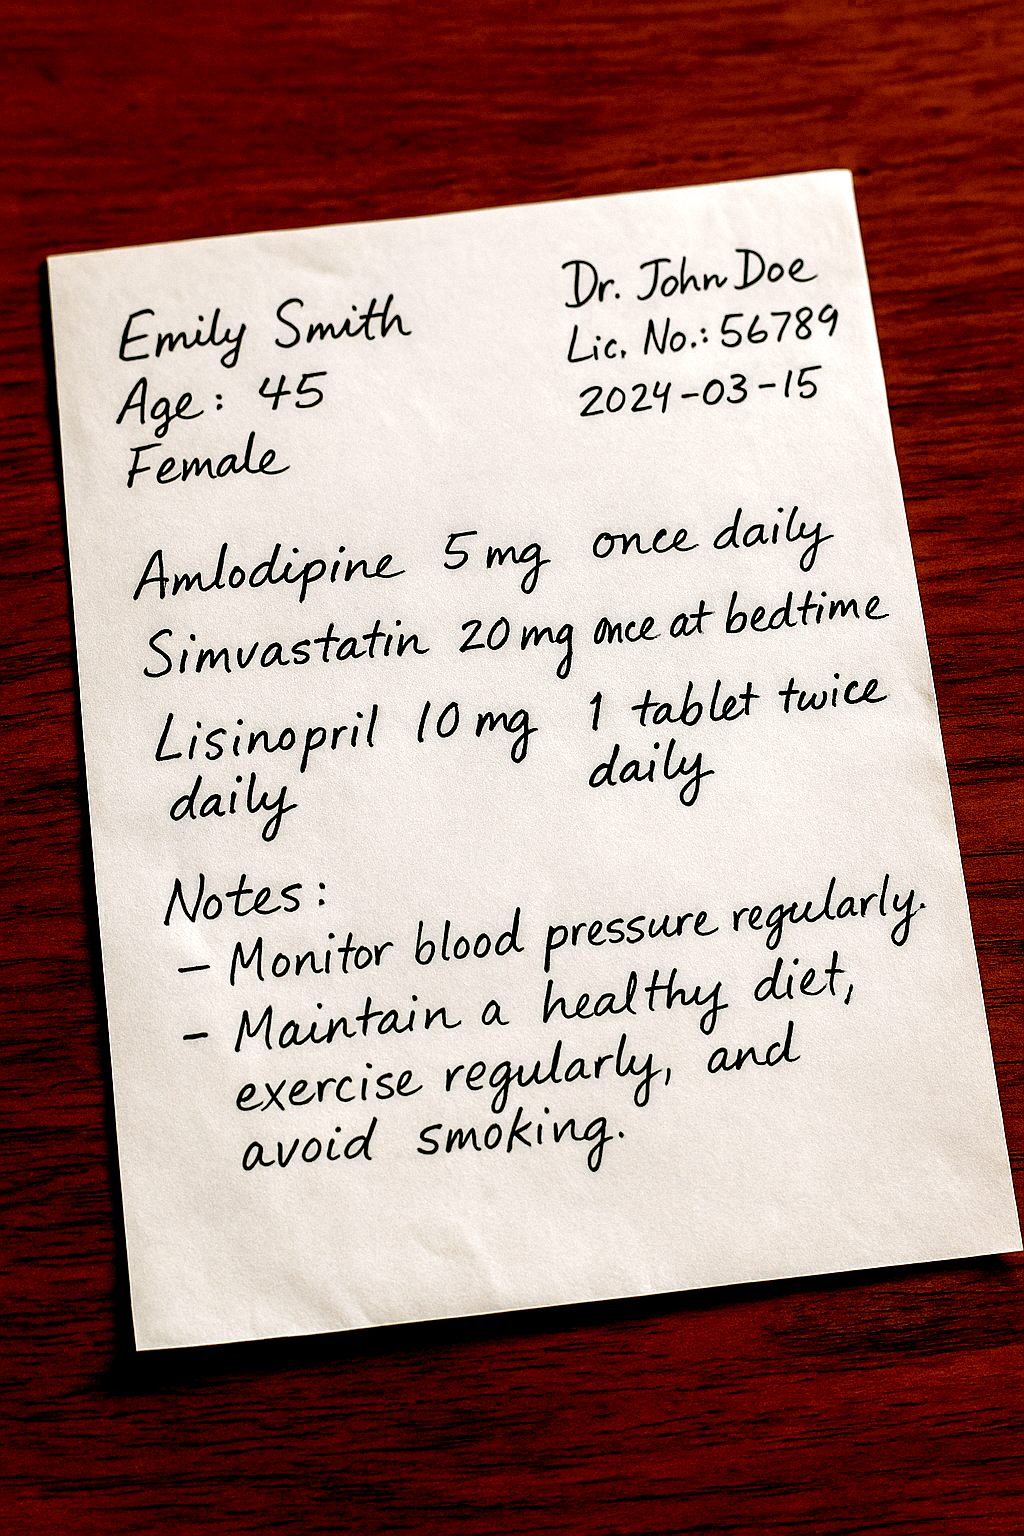 Emily Smith
Age: 45
Female
Dr. John Doe
Lic. No.: 56789
2024-03-15
Amlodipine 5 mg once daily
Simvastatin 20 mg once at bedtime
Lisinopril 10 mg 1 tablet twice
daily daily
Notes:
– Monitor blood pressure regularly.
– Maintain a healthy diet,
exercise regularly, and
avoid smoking.